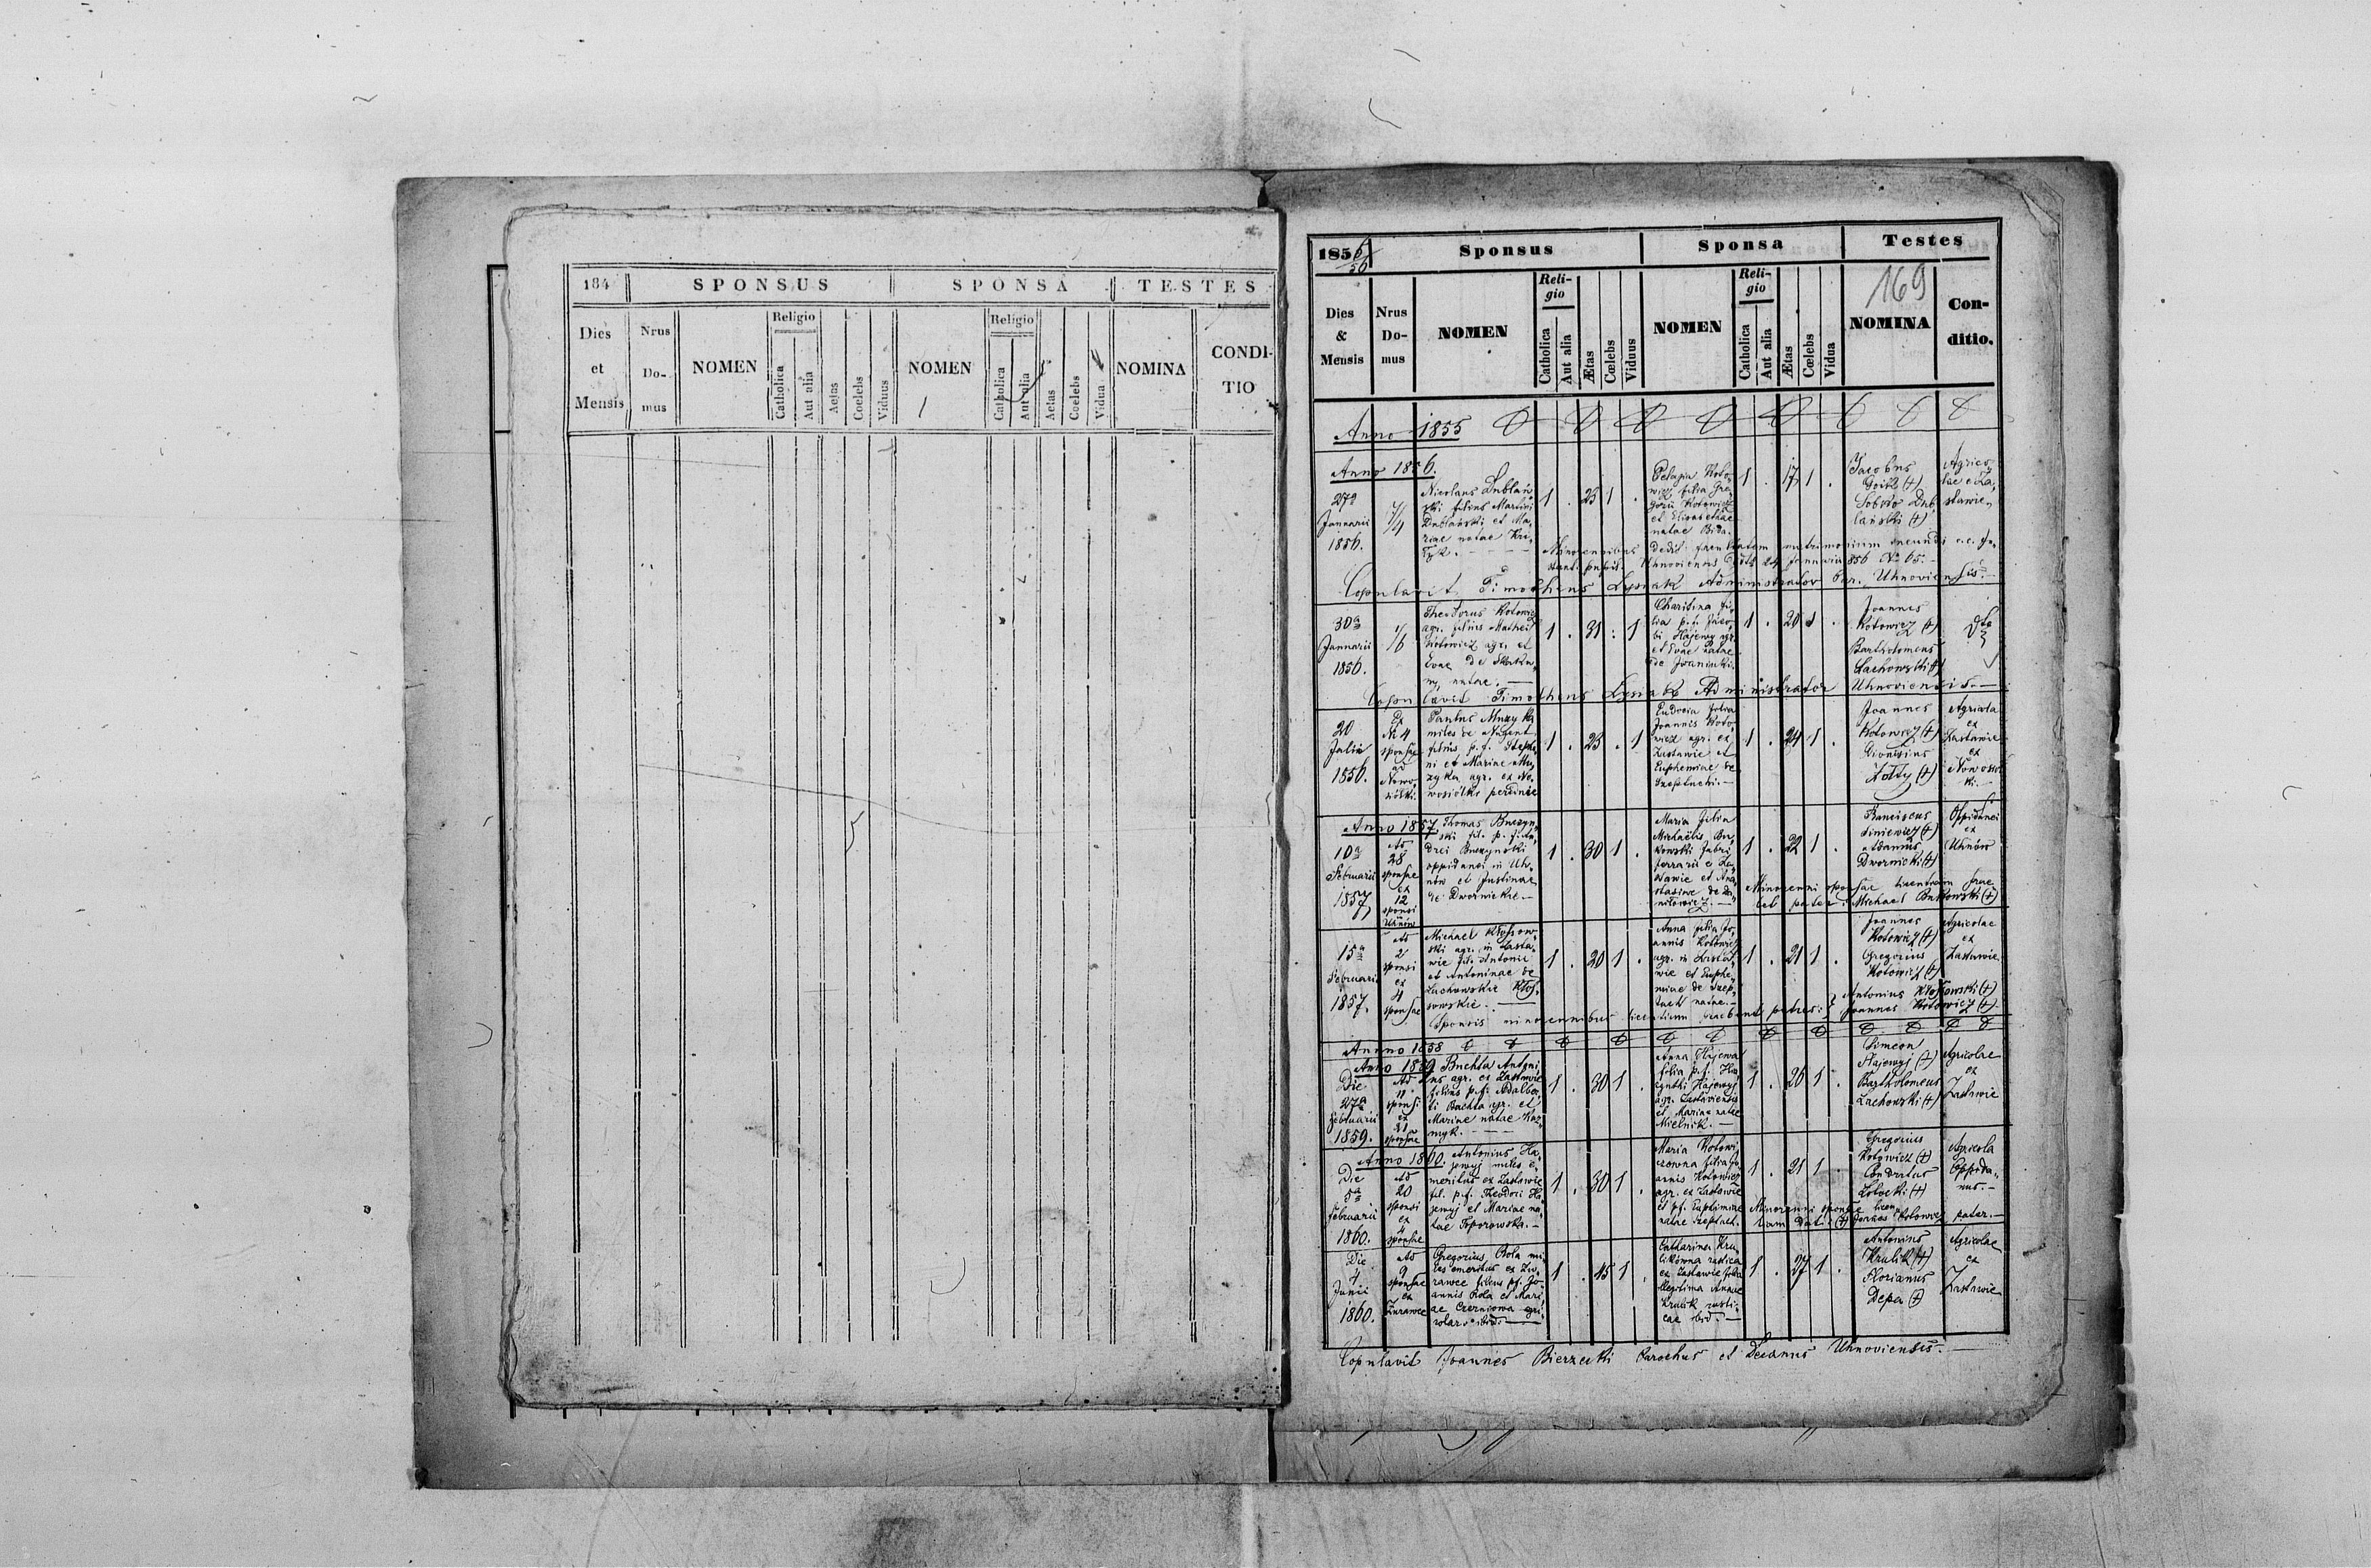 184 SPONSUS SPONSA TESTES
Dies et Mensis
Nrus Do- mus
NOMEN
Religio
Catholica
Aut alia
Aetas
Coelebs
Viduus
NOMEN
Religio
Catholica
Aut alia
Aetas
Coelebs
Vidua
NOMINA
CONDI-
TIO
185 Sponsus Sponsa Testes
169
Dies & Mensis
Nrus Do- mus
NOMEN
Reli- gio
Catholica
Aut alia
Ætas
Cœlebs
Viduus
NOMEN
Reli- gio
Catholica
Aut alia
Ætas
Cœlebs
Vidua
NOMINA
Con-
ditio.
Anno 1855
Anno 1856.
27a
Januarii
1856.
Nicolaus Dublań
ski filius Martini
Dublański et Ma
riae natae
1 . 25 1 .
Pelagia Koto
wicz filia Gre
gorii Kotowicz
et Elisabethae
natae Bida.
1 . 17 1 .
Jacobus
(+)
Dub
lański (+)
Agrico
lae e Za
stawie
Copulavit Timotheus Lysiak Administrator Par. Uhnoviensis.
30a
Januarii
1856.
1/6
Theodorus Kotowicz
agr. filius Mathei
Kotowicz agr. et
Evae de
natae.
1 . 31 . 1
Charitina fi
lia p.f. Jaco
bi Hajewy agr.
et Evae natae
de
1 . 20 1 .
Joannes
Kotowicz (+)
Bartholomeus
Lachowski (+)
Copulavit Timotheus Lysiak Administrator Uhnoviensis.
20
Julii
1856.
Ex
Nr 4
sponsae
ad
Nowo
siółki.
Paulus Muzyka
miles de Nugent
filius p.f. Stepha
ni et Mariae Mu
zyka agr. ex No
wosiółki
1 . 23 . 1
Eudocia filia
Joannis Koto
wicz agr. ex
Zastawie et
Euphemiae de
Szeptuch.
1 . 24 1 .
Joannes
Kotowicz (+)
Dionisius
Żółty (+)
Agricola
ex
Zastawie
ex
Nowosiół
ki.
Anno 1857.
10a
Februarii
1857
Ad
28
sponsae
ex
12
sponsi
Uhnów
Thomas Buczyn
ski fil. p.f. An
drei Buczynski
oppidanei in Uh
nów et Justinae
de Dwornickie
1 . 30 1 .
Maria filia
Michaelis Bu
kowski fabri
ferrarii e Za
stawie et Ana
stasiae de Da
niłowicz.
1 . 22 1 .
Franciscus
Liniewicz (+)
Adamus
Dwornicki (+)
Oppidanei
ex
Uhnów
Minorenni sponsae licentiam prae
bet pater: Michael Bukowski (+)
15a
Februarii
1857.
Ad
2
sponsi
ex
4
sponsae
Michael Kłossow
ski agr. in Zasta
wie fil. Antonii
et Antoninae de
Lachowskie Kłos
sowskie.
1 . 20 1 .
Anna filia Jo
annis Kotowicz
agr. in Zasta
wie et Euphe
miae de Szep
tuch natae.
1 . 21 1 .
Joannes
Kotowicz (+)
Gregorius
Kotowicz (+)
Agricolae
ex
Zastawie
Sponsis minorennibus licentiam praebent patres: Antonius Kłossowski (+)
Joannes Kotowicz (+)
Anno 1858
Anno 1859
Die
27a
Februarii
1859.
Ad
11
sponsi
ex
21
sponsae
Buchta Antoni
us agr. ex Zastawie
filius p.f. Adalber
ti Buchta agr. et
Mariae natae Koz
myk.
1 . 30 1 .
Anna Hajewa
filia p.f. Hia
cynthi Hajewyj
agr. Zastaviensis
et Mariae natae
Mielnik.
1 . 26 1 .
Simeon
Hajewyj (+)
Bartholomeus
Lachowski (+)
Agricolae
ex
Zastawie
Anno 1860.
Die
5a
Februarii
1860.
Ad
20
sponsi
ex
4
sponsae
Antonius Ha
jewyj miles e
meritus ex Zastawie
fil. p.f. Theodori Ha
jewyj et Mariae na
tae Toporowska.
1 . 30 1 .
Maria Kotowi
czowna filia Jo
annis Kotowicz
agr. ex Zastawie
et pf. Euphemiae
natae Szeptuch.
1 . 21 1 .
Gregorius
Kotowicz (+)
Condratus
(+)
Agricola
Oppida
nus.
Minorenni sponsae licen
tiam dat: (+) Joannes Kotowicz pater.
Die
4
Junii
1860.
Ad
9
sponsae
ex
Żurawce
Gregorius Bola mi
les emeritus ex Żu
rawce filius pf. Jo
annis Bola et Mari
ae Czerniowa agri
colar. ibid.
1 . 45 1 .
Catharina Kru
likówna rustica
ex Zastawie filia
illegitima Annae
Krulik rusti
cae ibid.
1 . 27 1 .
Antonius
Krulik (+)
Florianus
Depa (+)
Agricolae
ex
Zastawie
Copulavit Joannes Bierzecki Parochus et Decanus Uhnoviensis.